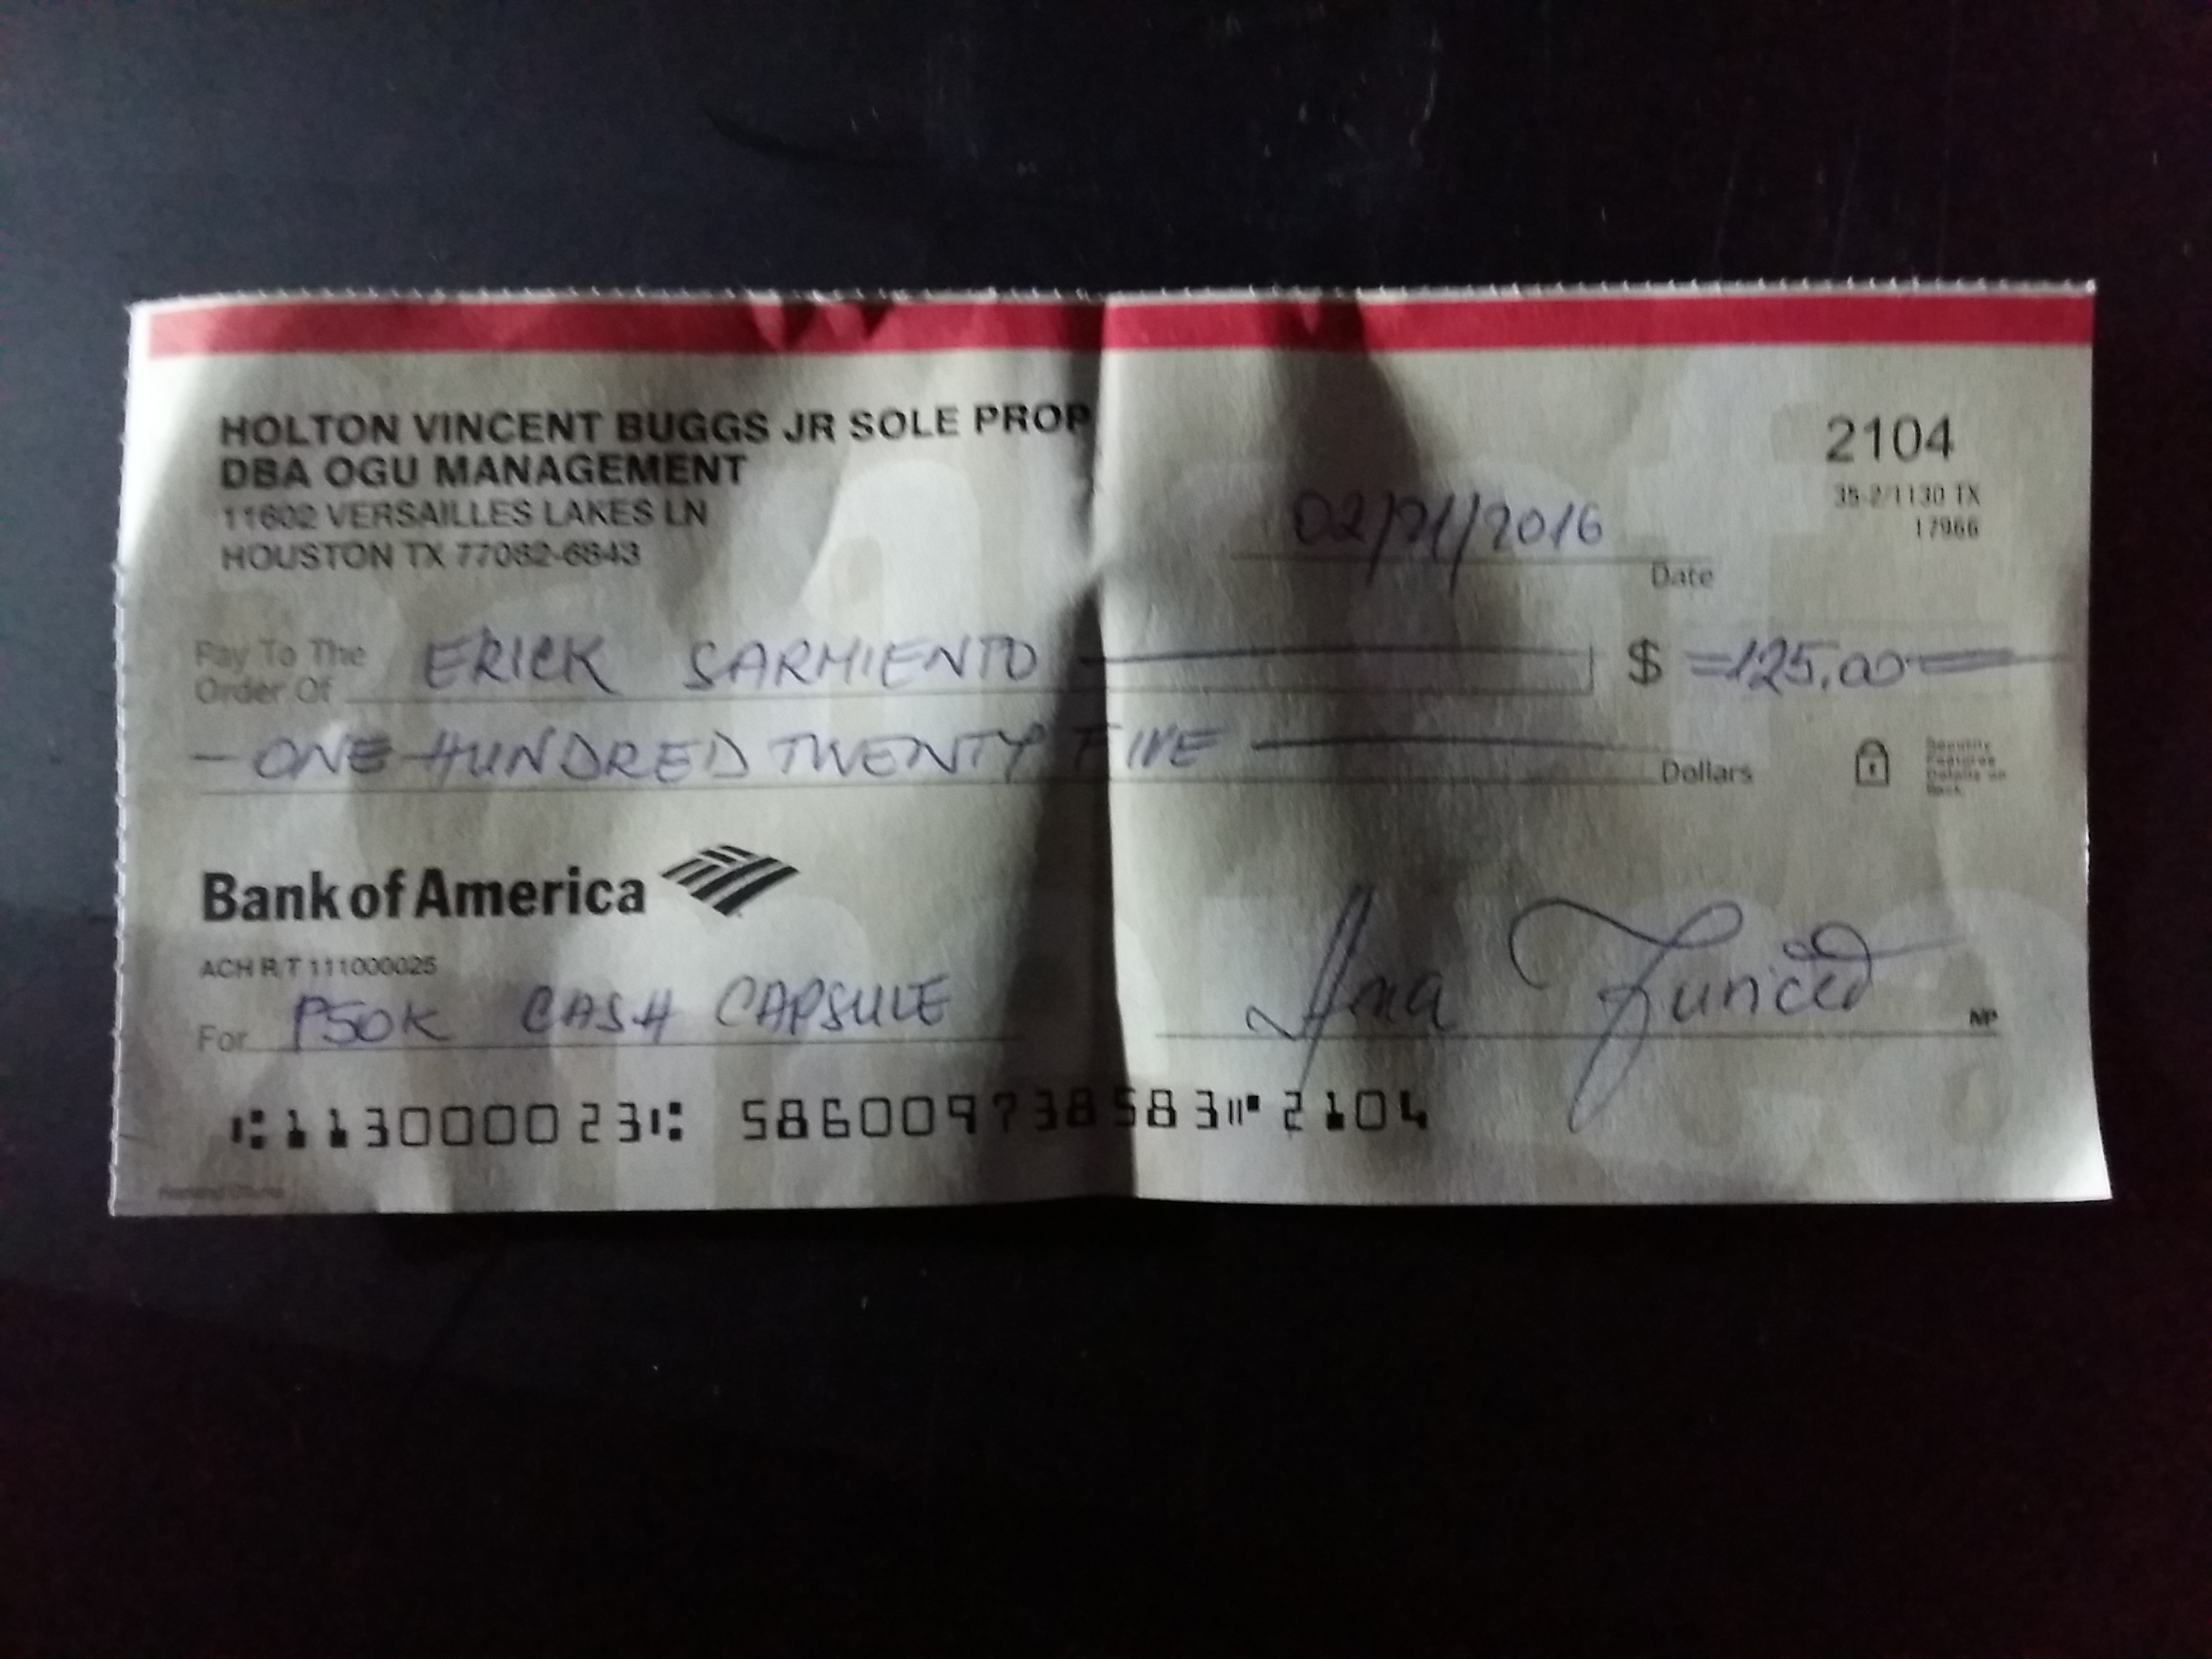 HOLTON VINCENT BUGGS JR SOLE PROP
DBA OGU MANAGEMENT
11602 VERSAILLES LAKES LN
HOUSTON TX 77082-6843
2104
35-2/1130 TX
17966
02/21/2016
Date
Pay To The
Order Of ERICK SARMIENTO $ =125.00=
- ONE HUNDRED TWENTY FIVE Dollars
Security
Features
Details on
Back
Bank of America
ACH R/T 111000025
For P50K CASH CAPSULE
Ana
MP
⑆113000023⑆ 586009738583⑈2104